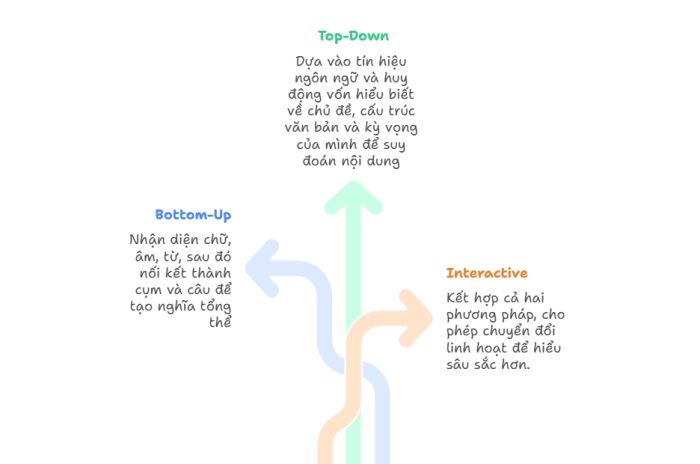 Top-Down
Dựa vào tín hiệu
ngôn ngữ và huy
động vốn hiểu biết
về chủ đề, cấu trúc
văn bản và kỳ vọng
của mình để suy
đoán nội dung
Bottom-Up
Nhận diện chữ,
âm, từ, sau đó
nối kết thành
cụm và câu để
tạo nghĩa tổng
thể
Interactive
Kết hợp cả hai
phương pháp, cho
phép chuyển đổi
linh hoạt để hiểu
sâu sắc hơn.